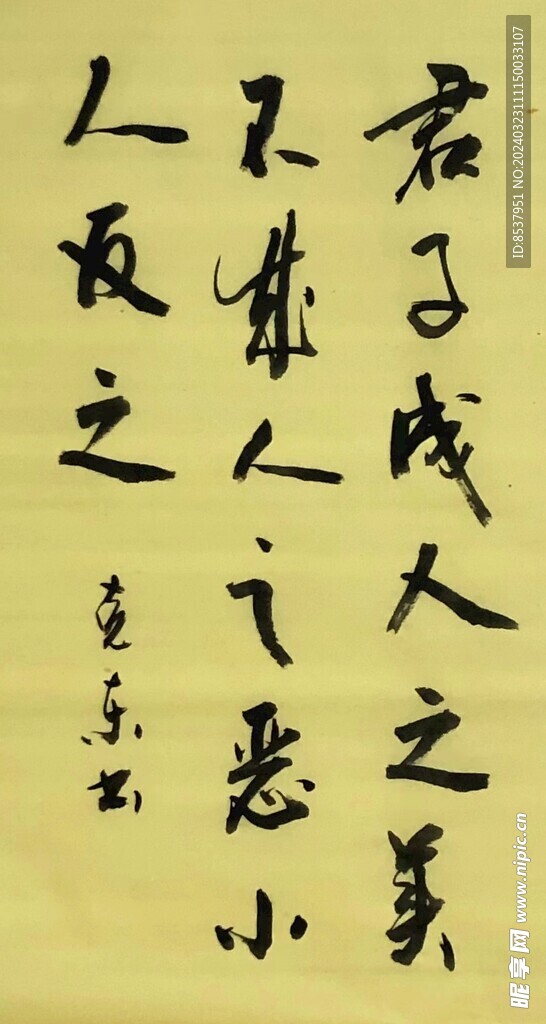 君子成人之美
不成人之恶小
人反之
克东书
ID:8537951 NO:20240323111150033107
昵享网 www.nipic.cn